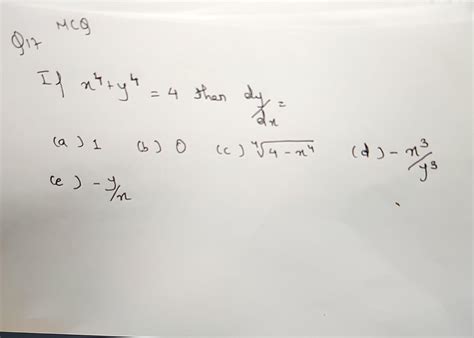 MCQ
Q17
If x⁴+y⁴ = 4 then dy/dx =
(a) 1 (b) 0 (c) ∜(4-x⁴) (d) -x³/y³
(e) -y/x